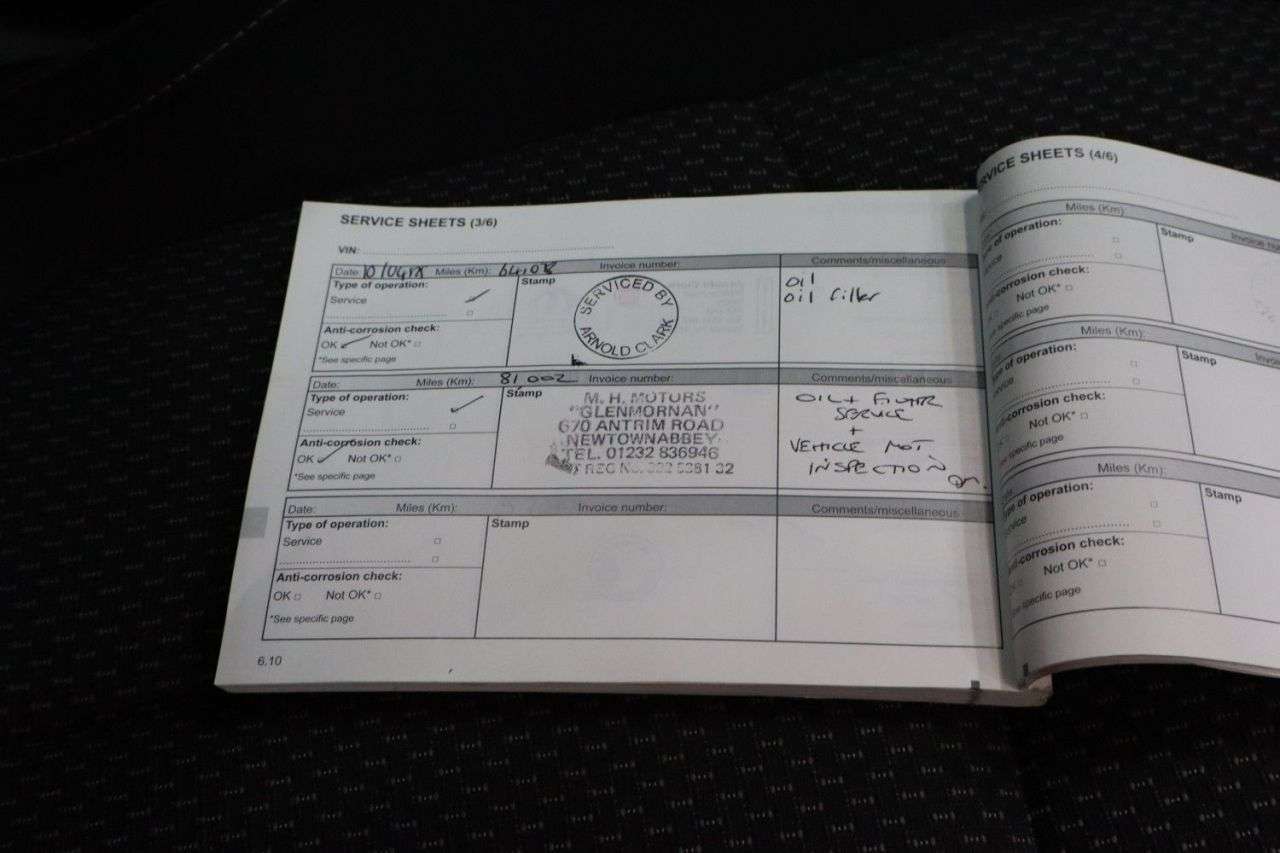 SERVICE SHEETS (3/6)
VIN:
Date: Miles (Km): Invoice number: Comments/miscellaneous
Type of operation:
Service
Stamp
SERVICED BY
ARNOLD CLARK
oil
oil filter
Anti-corrosion check:
OK Not OK*
*See specific page
Date: Miles (Km): 81,002 Invoice number: Comments/miscellaneous
Type of operation:
Service
Stamp
M. H. MOTORS
"GLENMORNAN"
670 ANTRIM ROAD
NEWTOWNABBEY
TEL. 01232 836946
REG No.
OIL + FILTER
SERVICE
+
VEHICLE MOT
INSPECTION
Anti-corrosion check:
OK Not OK*
*See specific page
Date: Miles (Km): Invoice number: Comments/miscellaneous
Type of operation:
Service
Stamp
Anti-corrosion check:
OK Not OK*
*See specific page
6.10
SHEETS (4/6)
Miles (Km):
of operation:
Stamp
check:
Not OK*
specific page
Miles (Km):
of operation:
Stamp
check:
Not OK*
specific page
Miles (Km):
of operation:
Stamp
check:
Not OK*
specific page